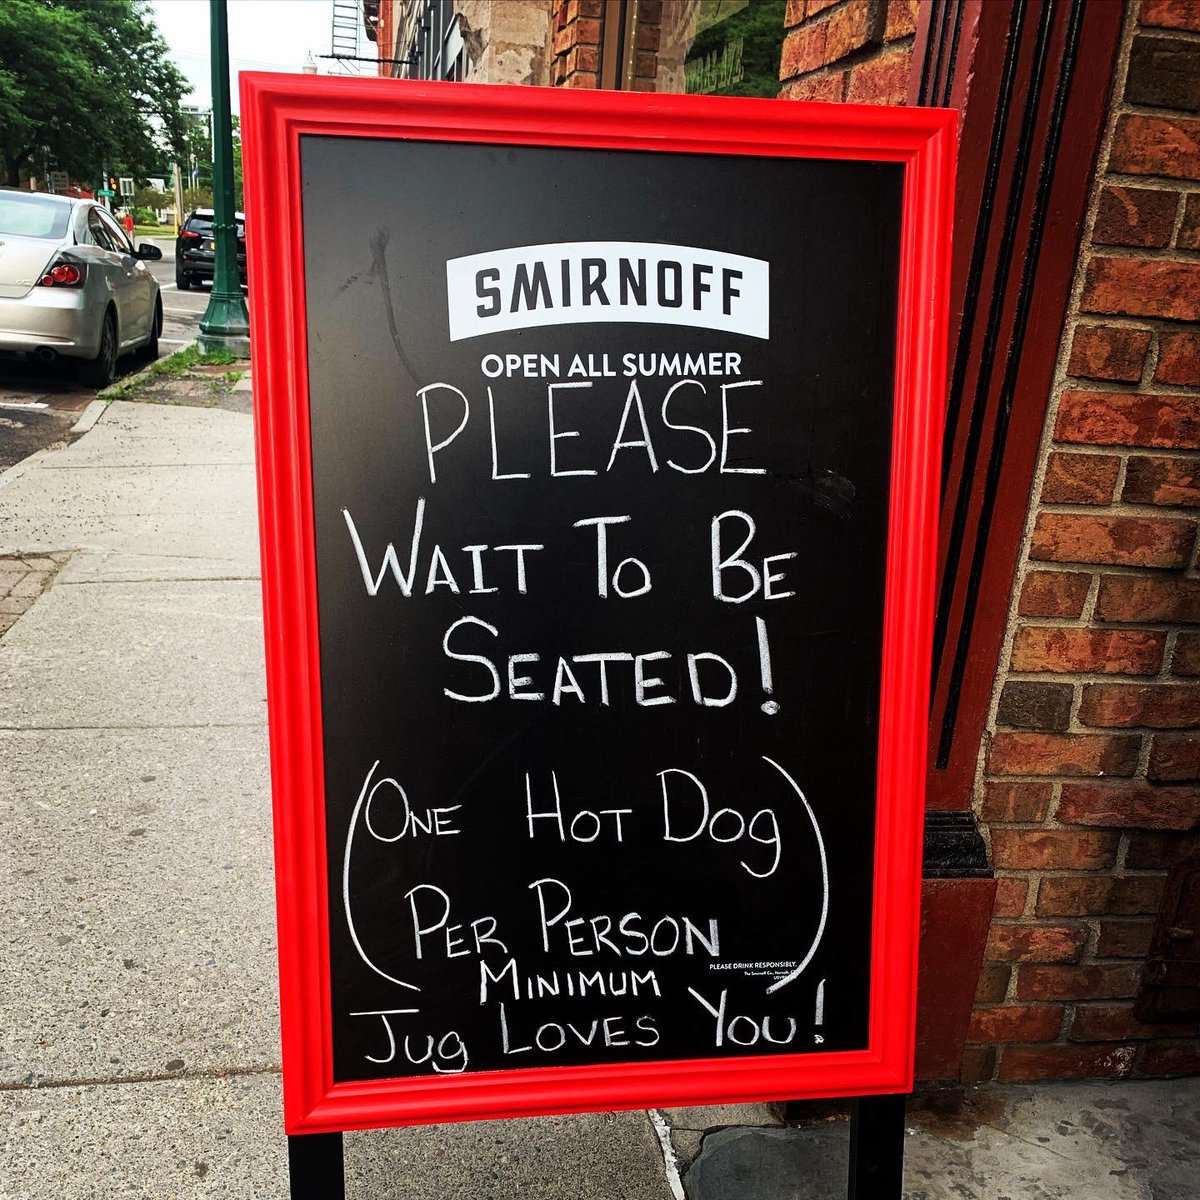 SMIRNOFF
OPEN ALL SUMMER
PLEASE
WAIT TO BE
SEATED!
(ONE HOT DOG
PER PERSON
MINIMUM)
PLEASE DRINK RESPONSIBLY.
The Smirnoff Co., Norwalk, CT
JUG LOVES YOU!